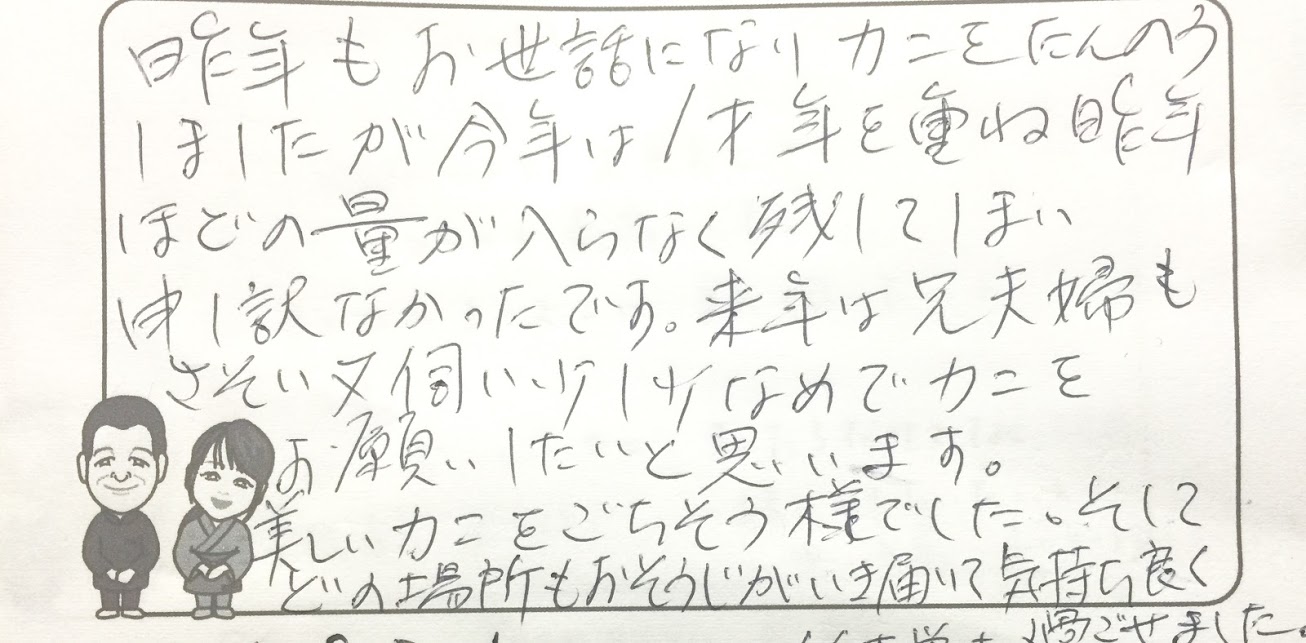 昨年もお世話になりカニをたんのう
しましたが今年は1才年を重ね昨年
ほどの量が入らなく残してしまい
申し訳なかったです。来年は兄夫婦も
さそい又伺い少し少なめでカニを
お願いしたいと思います。
美しいカニをごちそう様でした。そして
どの場所もおそうじがいき届いて気持ち良く
過ごせました。